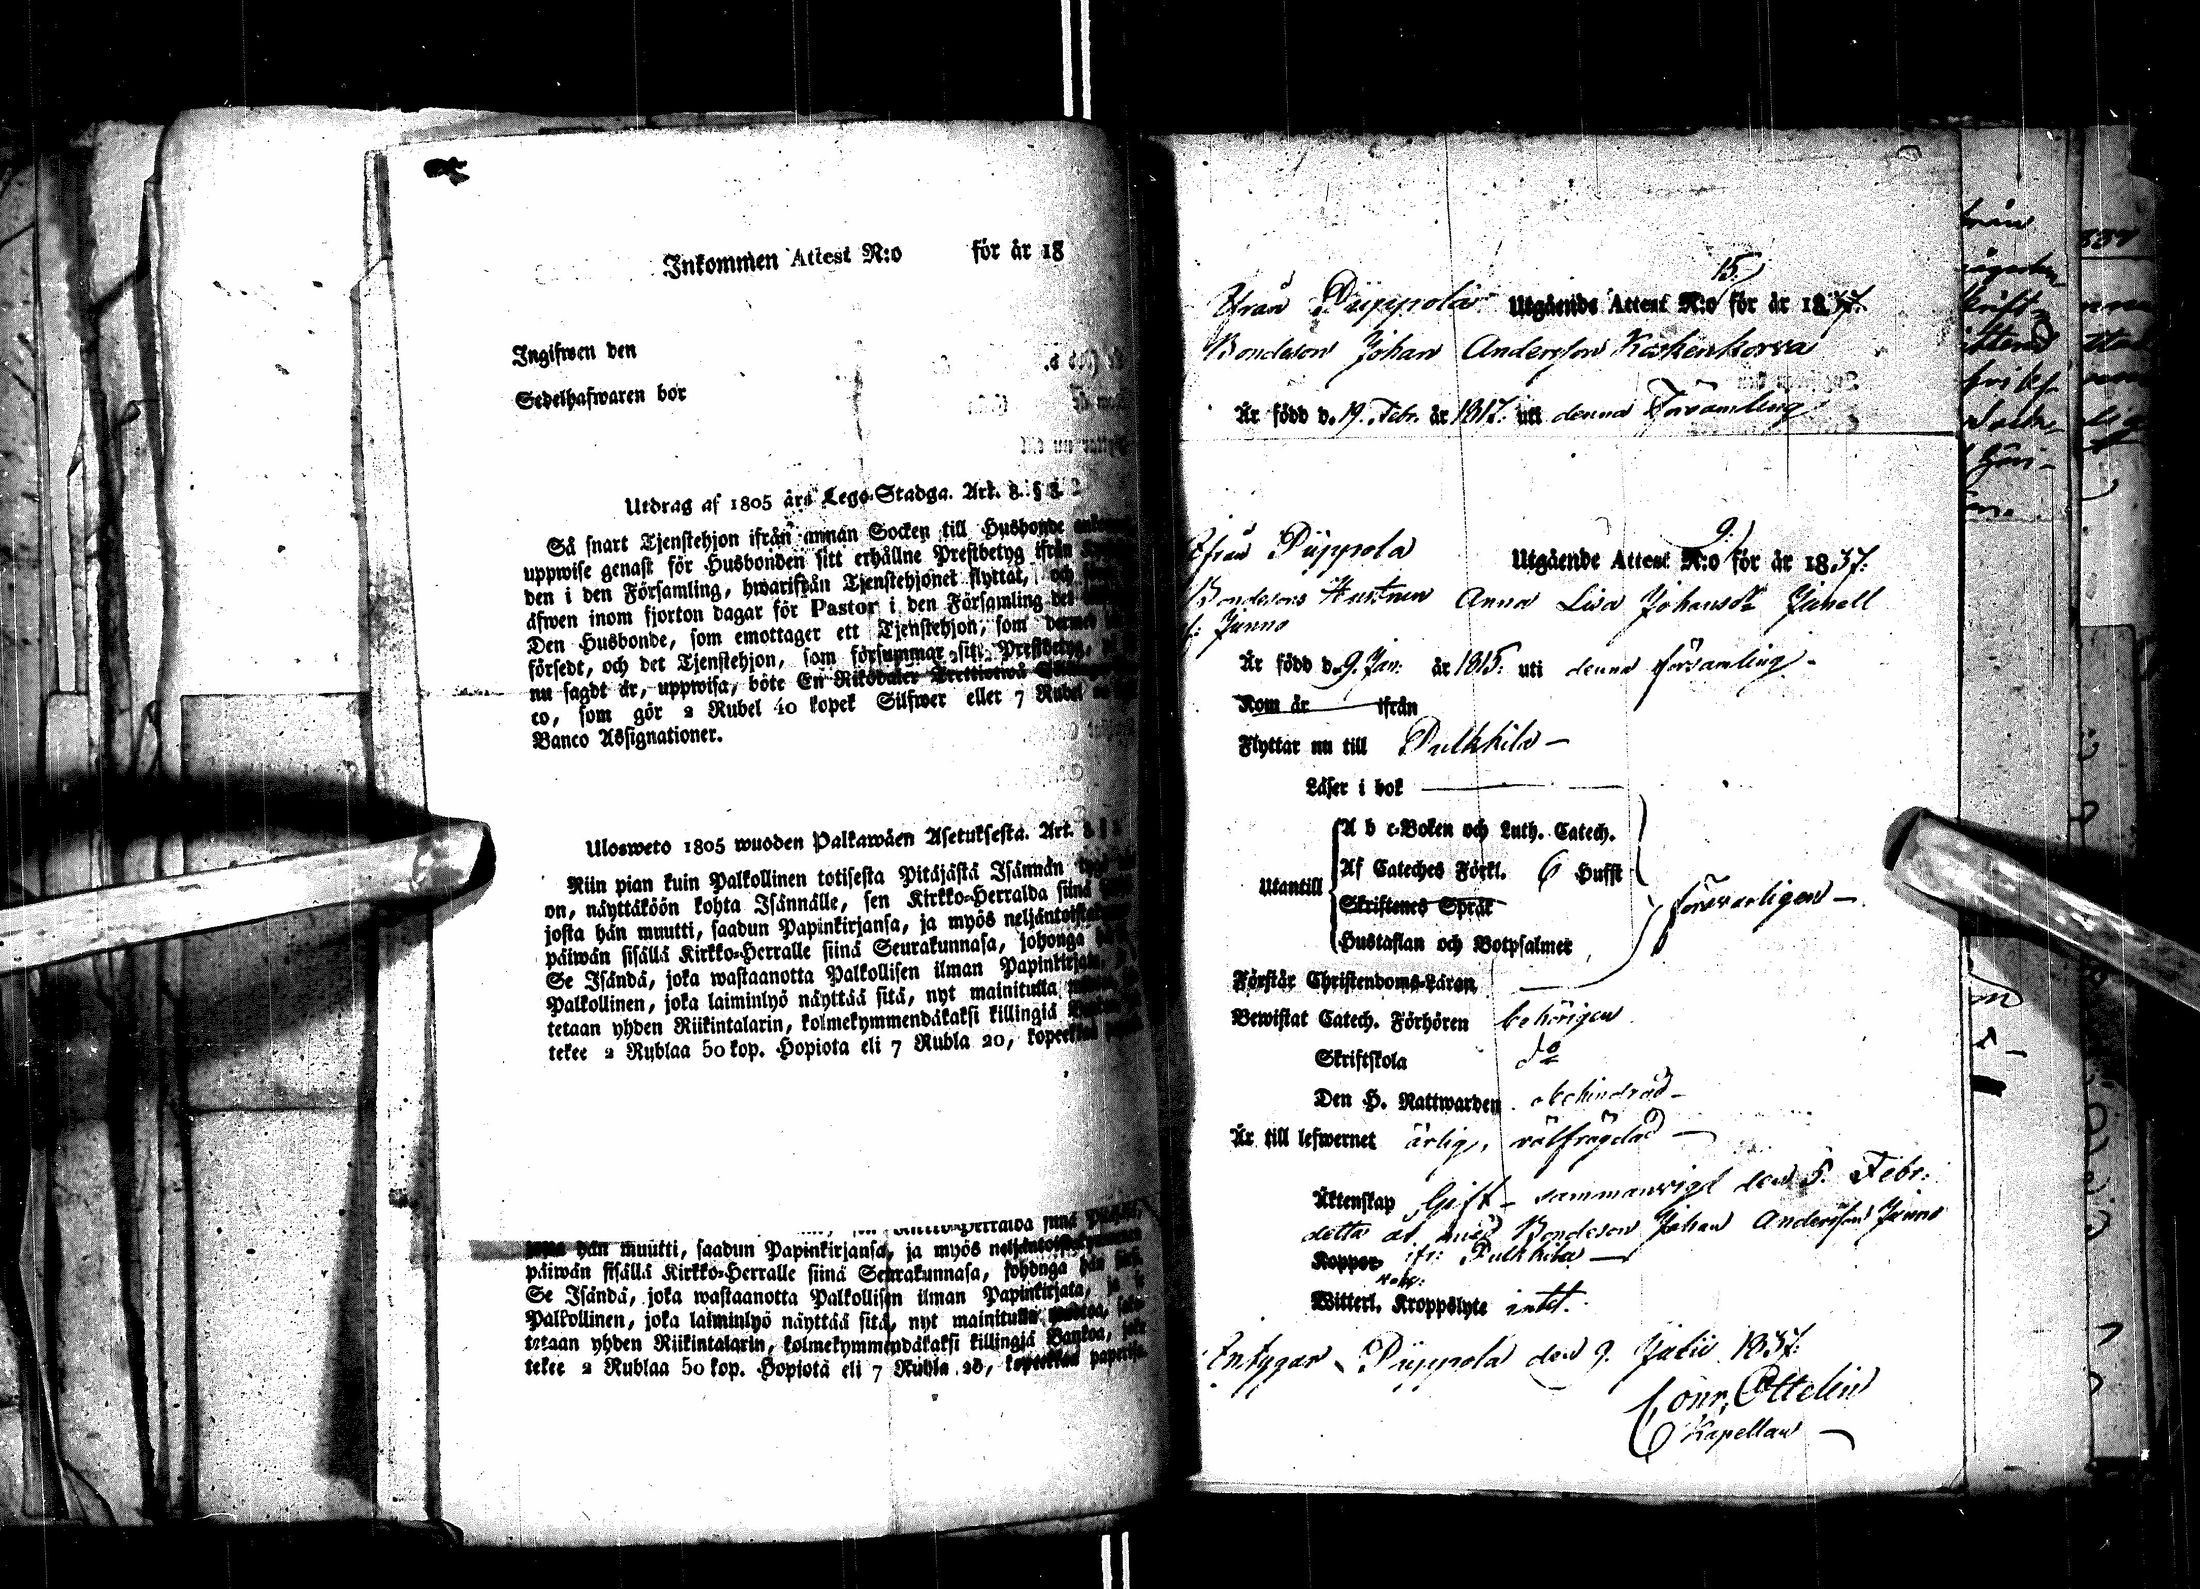 Inkommen Attest N:o för år 18
Ingifwen den
Sedelhafwaren bor
Utdrag af 1805 års Lego-Stadga. Art. 8. § 3.
Så snart Tjenstehjon ifrån annan Socken till Husbonde
uppwise genast för Husbonden sitt erhållne Prestbetyg ifrån
den i den Församling, hwarifrån Tjenstehjonet flyttat, och
äfwen inom fjorton dagar för Pastor i den Församling det
Den Husbonde, som emottager ett Tjenstehjon, som dermed
försedt, och det Tjenstehjon, som försummar sitt Prestbetyg,
nu sagdt är, uppwisa, böte En Riksdaler Trettiotwå
co, som gör 2 Rubel 40 kopek Silfwer eller 7 Rubel
Banco Assignationer.
Ulosweto 1805 wuoden Palkawäen Asetuksesta. Art. 8 §
Niin pian kuin Palkollinen toisesta Pitäjästä Isännän
on, näyttäköön kohta Isännälle, sen Kirkko-Herralda siinä
josta hän muutti, saadun Papinkirjansa, ja myös neljäntoista
päiwän sisällä Kirkko-Herralle siinä Seurakunnasa, johonga
Se Isändä, joka wastaanotta Palkollisen ilman Papinkirjata,
Palkollinen, joka laiminlyö näyttää sitä, nyt mainitulla
tetaan yhden Riikintalarin, kolmekymmendäkaksi killingiä
tekee 2 Rublaa 50 kop. Hopiota eli 7 Rubla 20, kopeekkaa
hän muutti, saadun Papinkirjansa, ja myös neljäntoistakymmenen
päiwän sisällä Kirkko-Herralle siinä Seurakunnasa, johonga hän
Se Isändä, joka wastaanotta Palkollisen ilman Papinkirjata, ja
Palkollinen, joka laiminlyö näyttää sitä, nyt mainitulla
tetaan yhden Riikintalarin, kolmekymmendäkaksi killingiä Bankoa,
tekee 2 Rublaa 50 kop. Hopiotä eli 7 Rubla 20, kopeekkaa paperisa
15
Ifrån Püppola Utgående Attest N:o för år 1837.
Bondeson Johan Andersson Koskenkorva
Är född d. 19. Febr. år 1817. uti denna Församling
9.
Ifrån Püppola Utgående Attest N:o för år 1837.
Bondesons Hustrun Anna Lisa Johansdr Junell
Junno
Är född d. 9. Jan: år 1815. uti denna församling.
Kom är ifrån
Flyttar nu till Pulkkila –
Läser i bok
A b c-Boken och Luth. Catech.
Af Cateches Förkl. 6 Hufst
Utantill
Skriftenes Språk
försvarligen –
Hustaflan och Botpsalmer
Förstår Christendoms-Läran
Bewistat Catech. Förhören behörigen
Skriftskola do
Den H. Nattwarden obehindrad –
Är till lefwernet ärlig, välfrägdad –
Äktenskap Gift – sammanvigd den 5. Febr:
detta år med Bondeson Johan Andersson Junno
Koppor ifr: Pulkkila –
Witterl. Kroppslyte intet.
Intygar Püppola den 9. Julii 1837.
Conr. Ottelin
Kapellan –